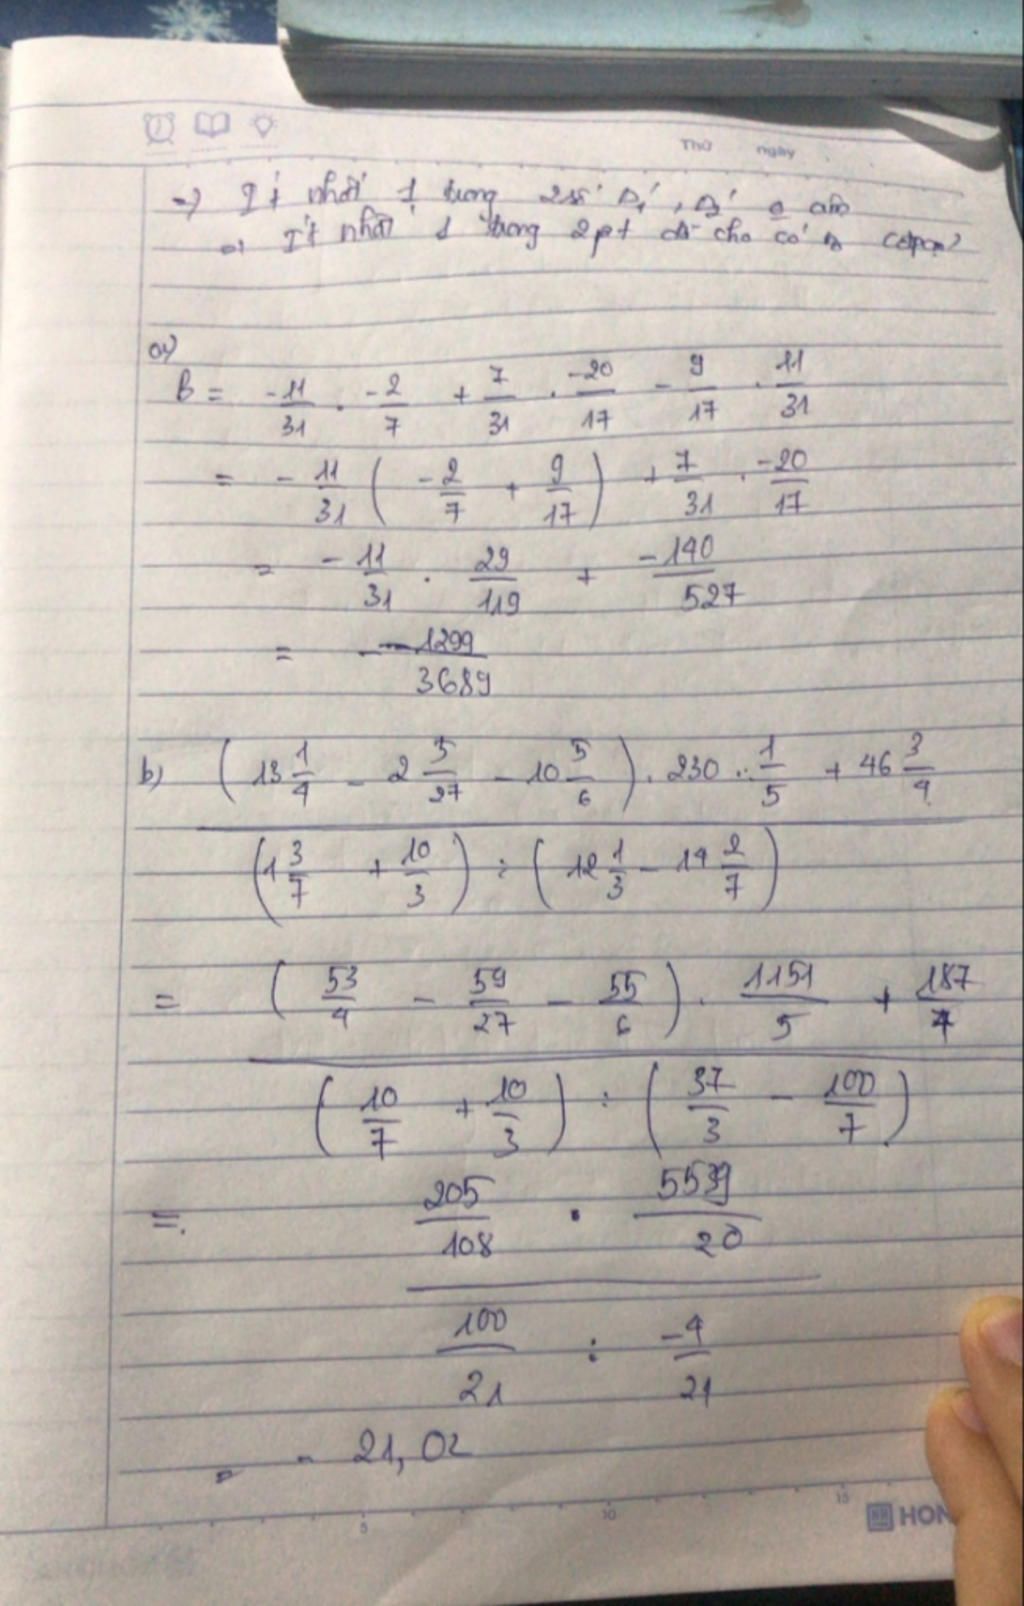 Thứ ngày
=> Ít nhất 1 trong 2 số Δ1, Δ2 ≥
=> Ít nhất 1 trong 2 pt đã cho có
a)
B = -11/31 . -2/7 + 7/31 . -20/17 - 9/17 . 11/31
= - 11/31 ( -2/7 + 9/17 ) + 7/31 . -20/17
= - 11/31 . 29/119 + -140/527
= -1299/3689
b) ( 13 1/4 - 2 5/27 - 10 5/6 ) . 230 . 1/5 + 46 3/4
( 1 3/7 + 10/3 ) : ( 12 1/3 - 14 2/7 )
= ( 53/4 - 59/27 - 55/6 ) . 1151/5 + 187/4
( 10/7 + 10/3 ) : ( 37/3 - 100/7 )
= 205/108 . 5539/20
100/21 : -4/21
= - 21,02
5 10 15
HON